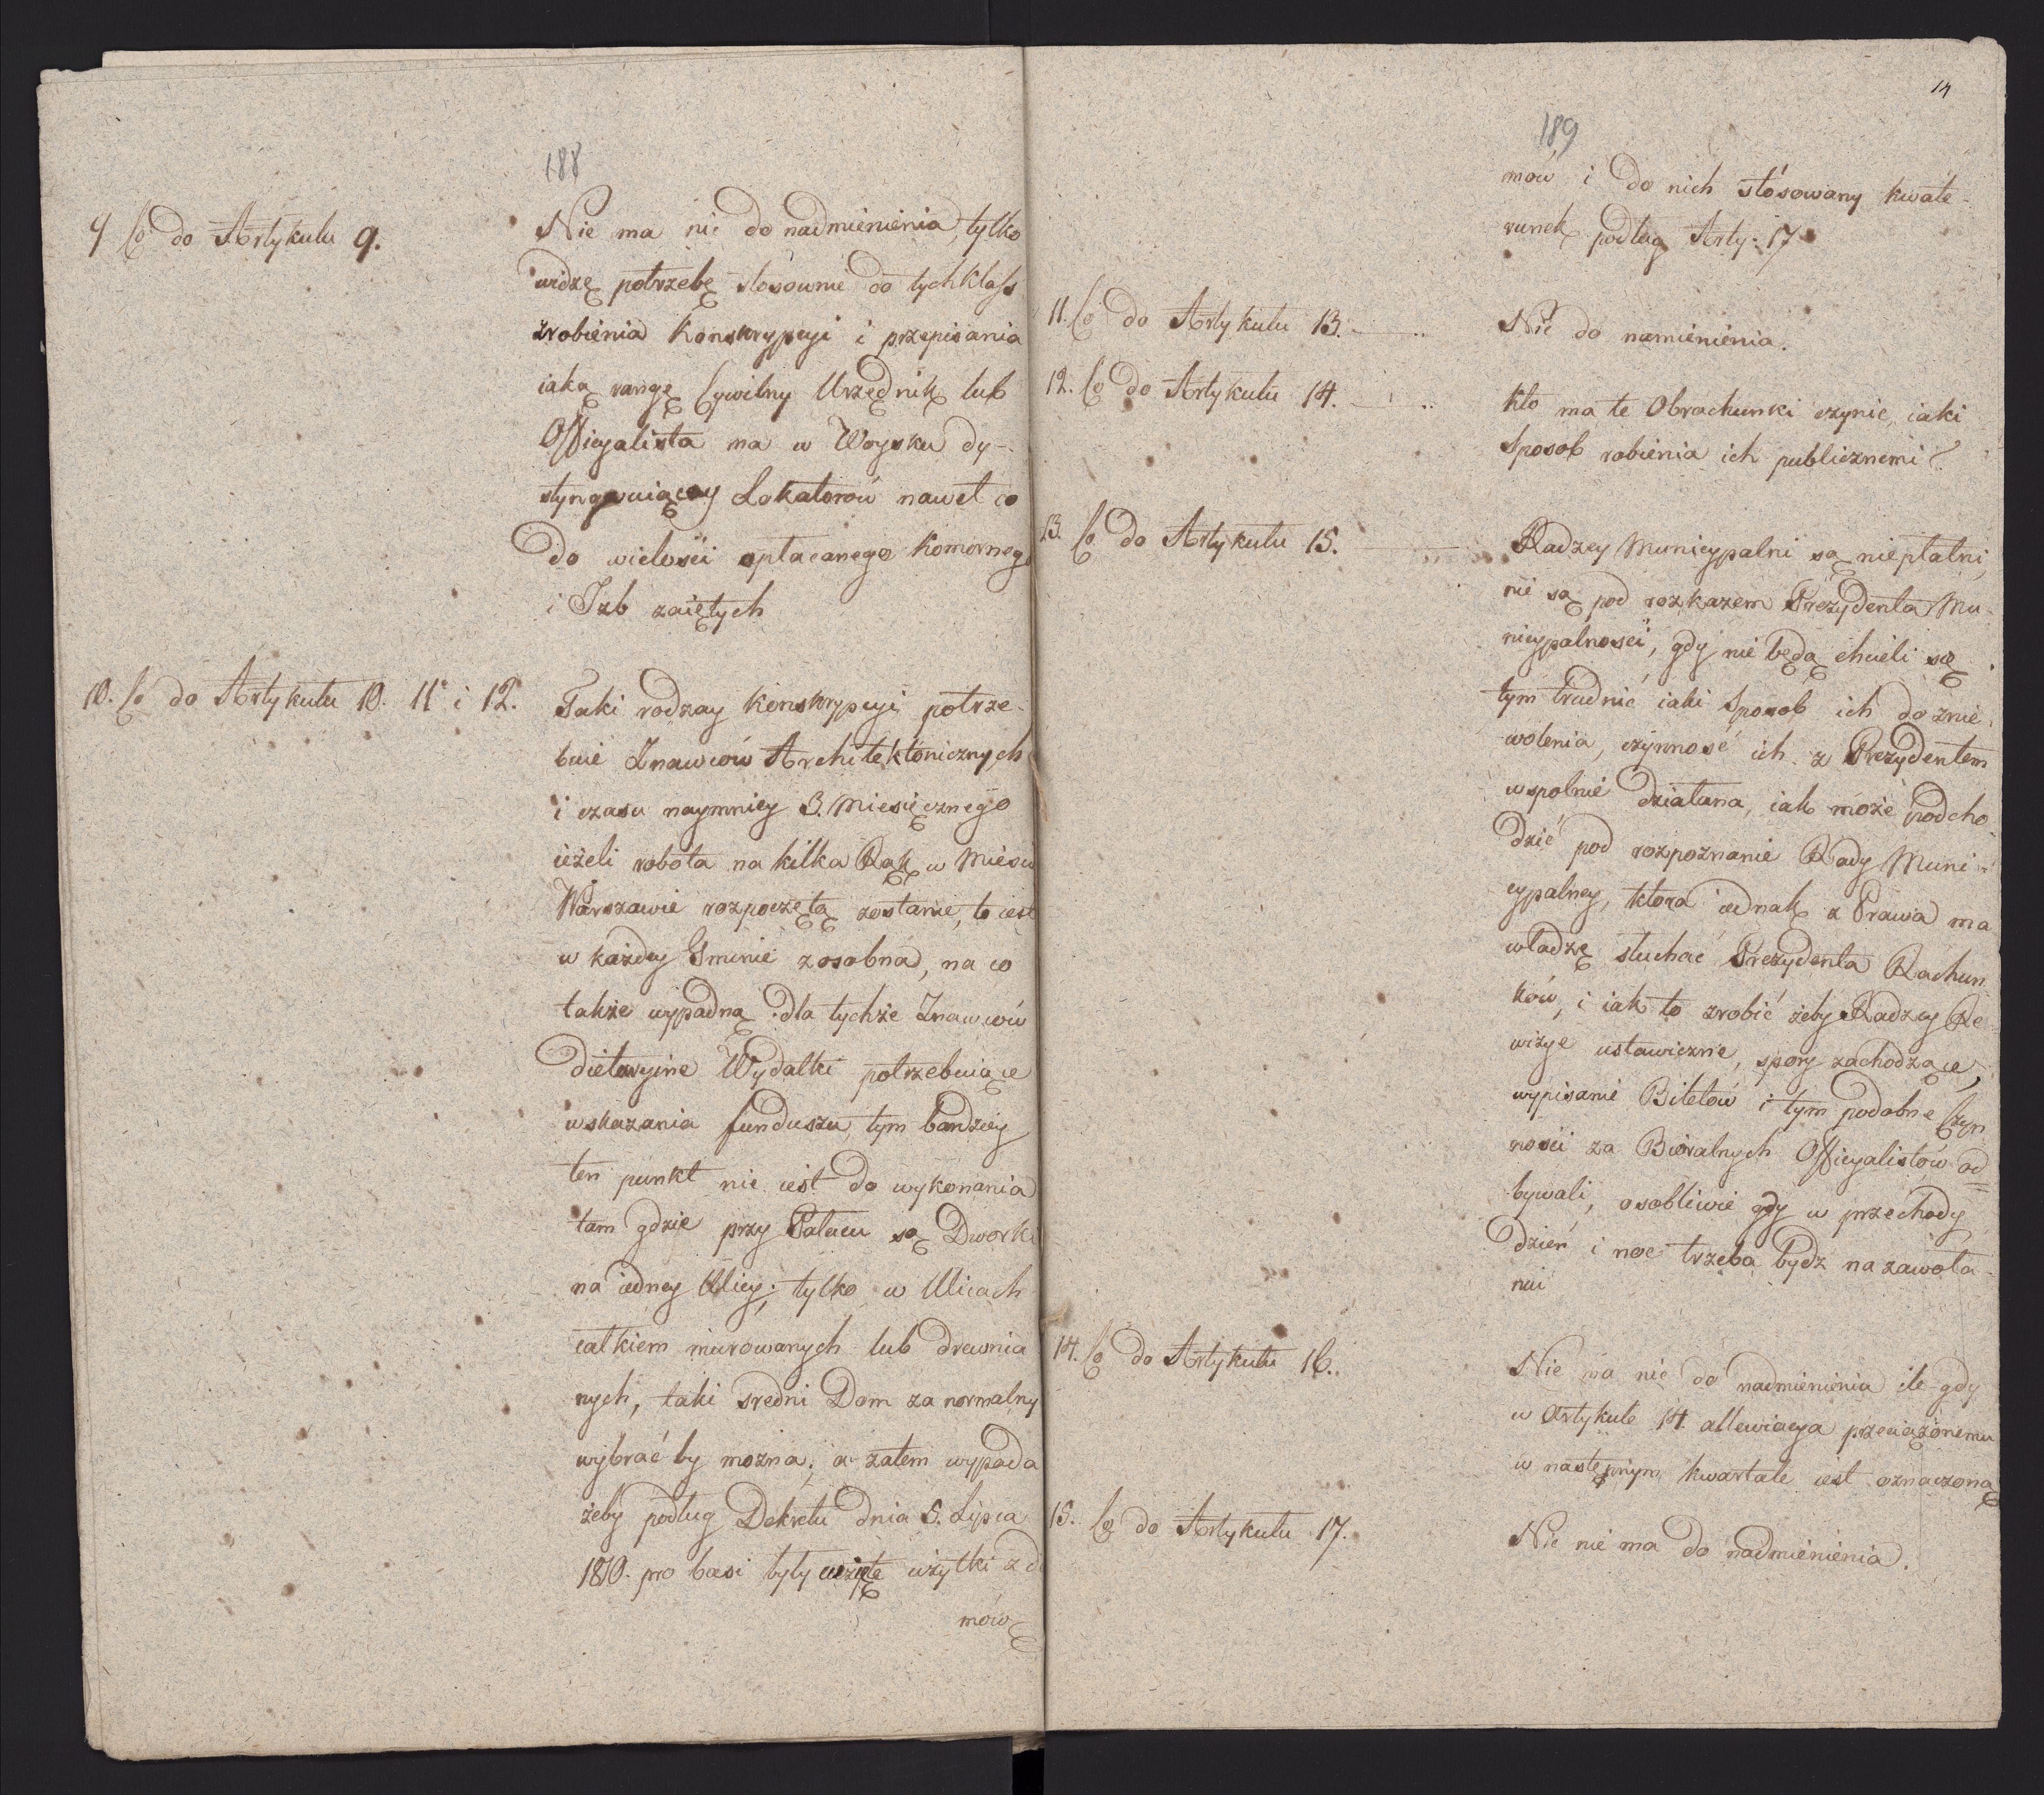 188
9 Co do Artykułu 9.
Nie ma nic do nadmienienia, tylko
widzę potrzebę stosownie do tych klass
zrobienia Konskrypcyi i przepisania
iaką rangę Cywilny Urzędnik lub
Officyalista ma w Woysku dy-
styngwuiącey Lokatorow nawet co
do wielości opłacanego Komornego
i Izb zaiętych
10. Co do Artykułu 10. 11. i 12.
Taki rodzay konskrypcyi potrze-
buie Znawcow Architektonicznych
i czasu naymniey 3. Miesięcznego
ieżeli robota na kilka Rąk w Mieście
Warszawie rozpoczętą zostanie, to iest
w każdey Gminie zosobna, na co
także wypadną dla tychże Znawców
dietaryine Wydatki potrzebuiące
wskazania funduszu, tym bardziey
ten punkt nie iest do wykonania
tam gdzie przy Pałacu są Dworki
na iedney Ulicy; tylko w Ulicach
całkiem murowanych lub drewnia
nych, taki sredni Dom za normalny
wybrać by można; a zatem wypada
żeby podług Dekretu dnia 5. Lipca
1810. pro basi były wzięte użytki z do
mów
14
189
mów i do nich stósowany kwate-
runek podług Arty: 17
11. Co do Artykułu 13.
Nic do namienienia.
12. Co do Artykułu 14.
Kto ma te Obrachunki czynić, iaki
Sposob robienia ich publicznemi?
13. Co do Artykułu 15.
Radzcy Municypalni są niepłatni,
nie są pod rozkazem Prezydenta Mu-
nicypalności, gdy nie będą chcieli się
tym trudnić iaki Sposob ich do znie-
wolenia, czynność ich z Prezydentem
wspolnie działana, iak może podcho-
dzić pod rozpoznanie Rady Muni-
cypalney, ktora iednak z Prawa ma
władzę słuchać Prezydenta Rachun
ków, i iak to zrobić żeby Radzcy Re
wizye ustawiczne, spory zachodzące,
wypisanie Biletów i tym podobne Czyn
ności za Bióralnych Officyalistów od=
bywali, osobliwie gdy w przechody
dzień i noc trzeba bydz na zawoła-
niu
14. Co do Artykułu 16.
Nie ma nic do nadmienienia ile gdy
w Artykule 14. allewiacya przeciążonemu
w następnym kwartale iest oznaczoną
15. Co do Artykułu 17.
Nic nie ma do nadmienienia.